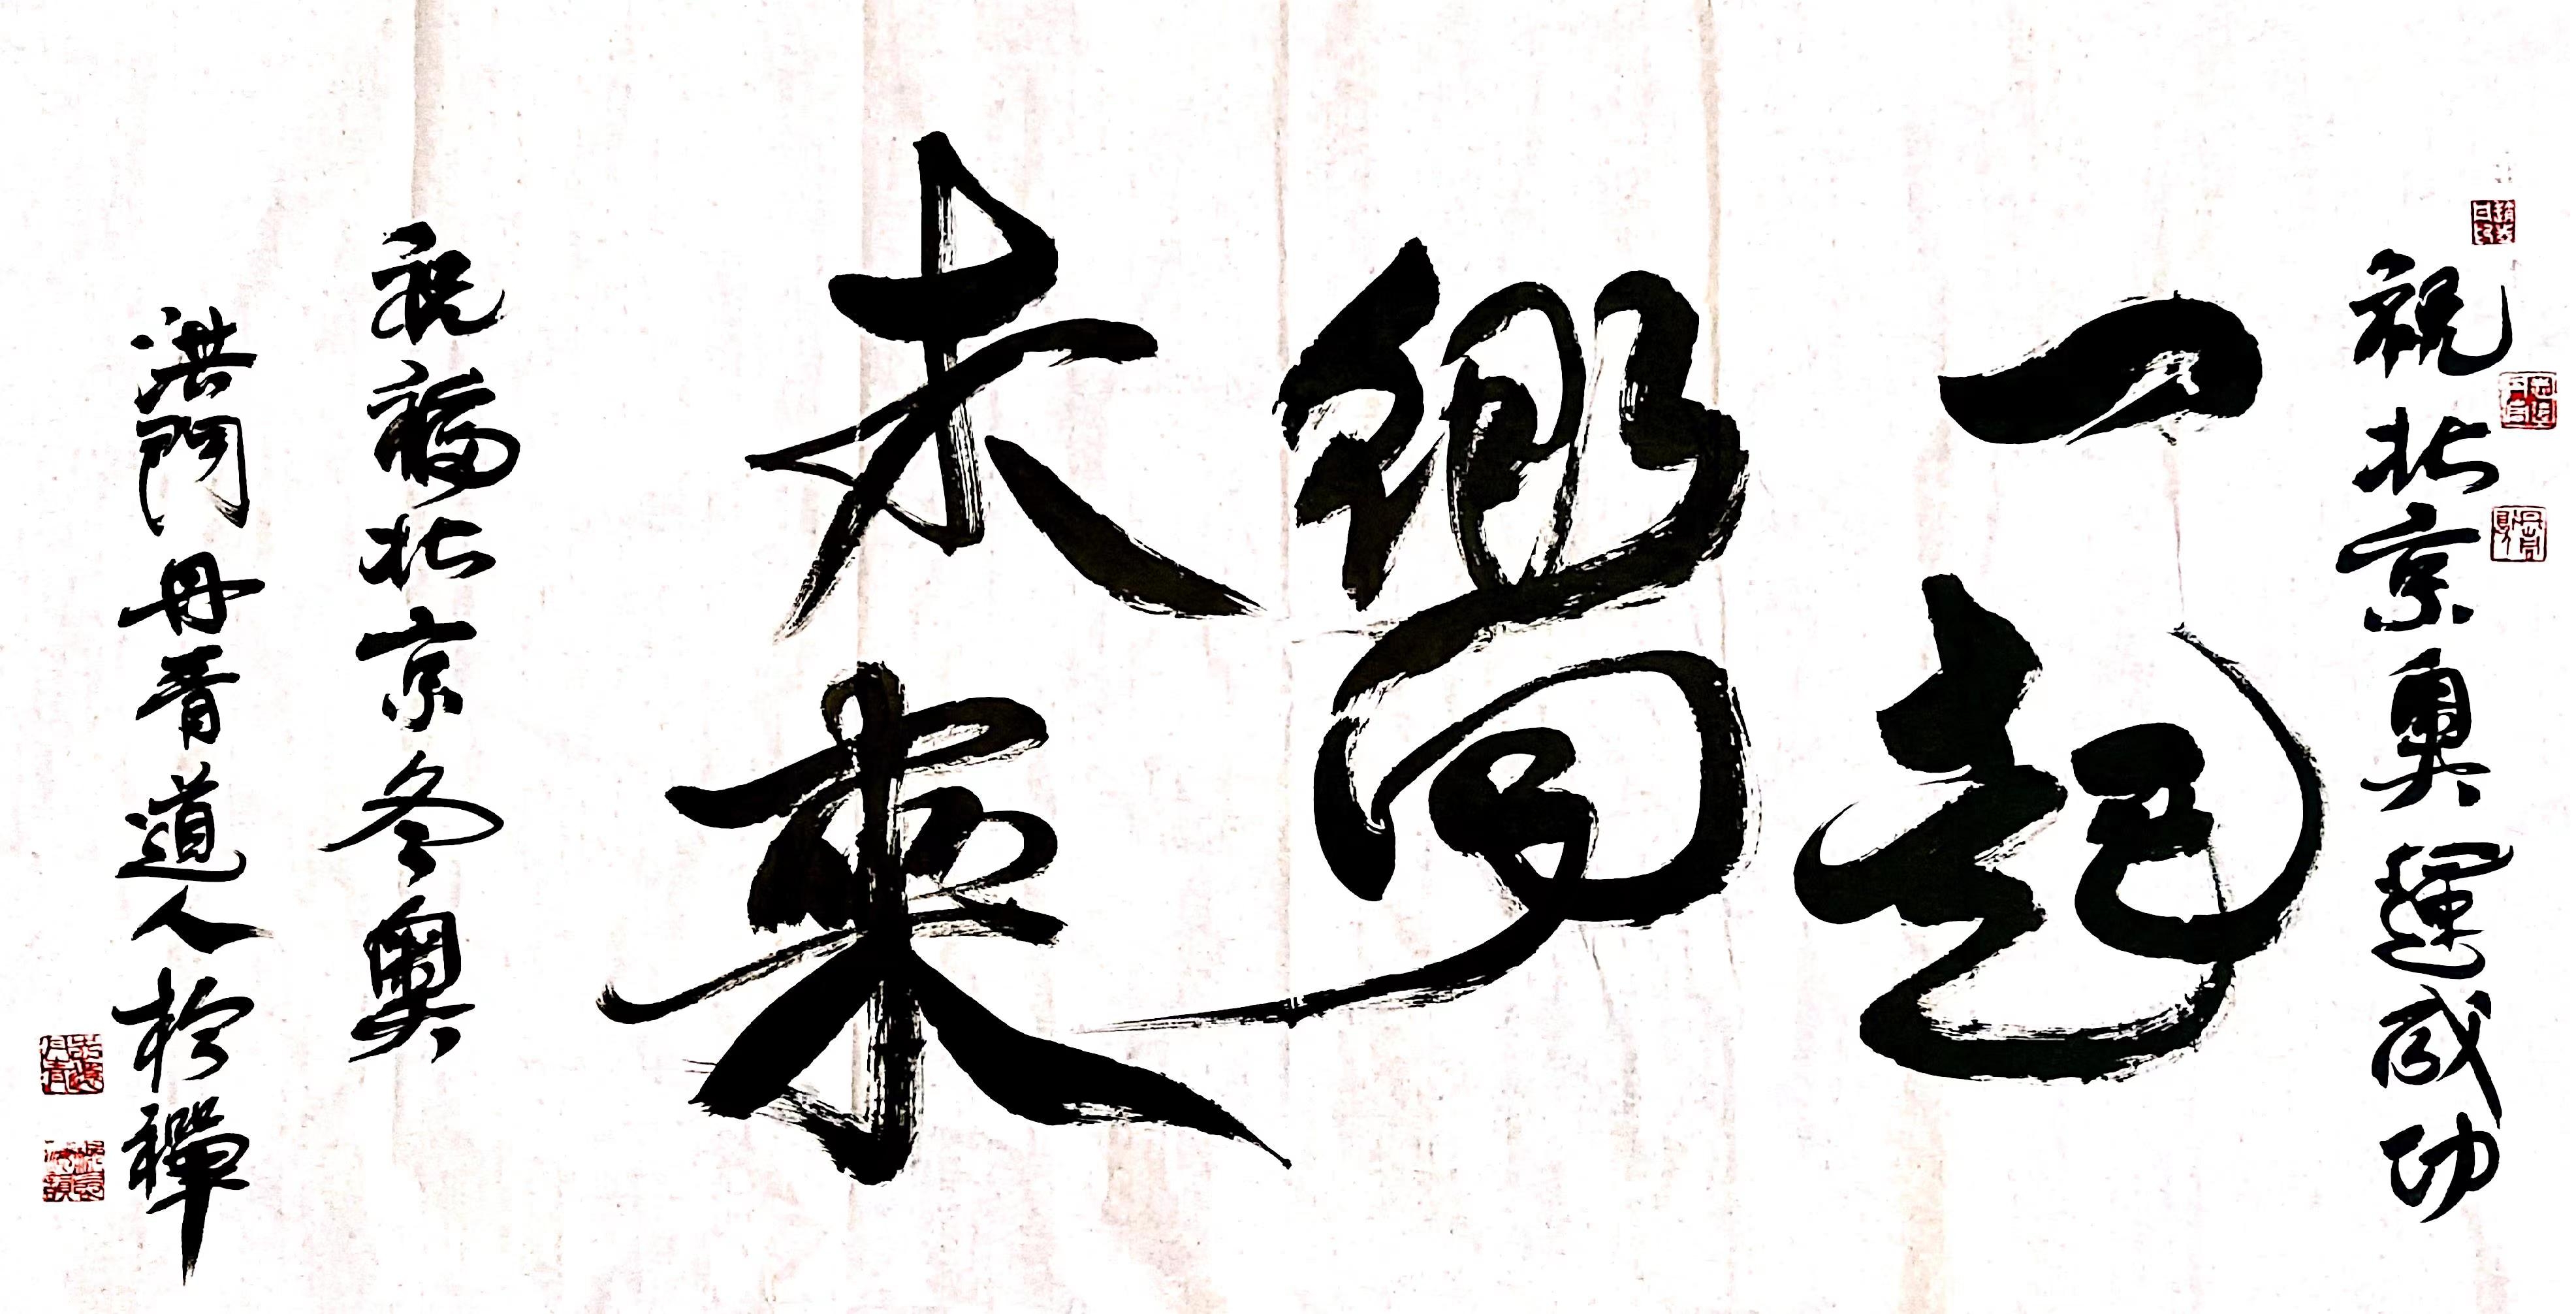 祝北京奥運成功
一起
嚮
未來
祝福北京冬奥
洪門丹青道人於禪